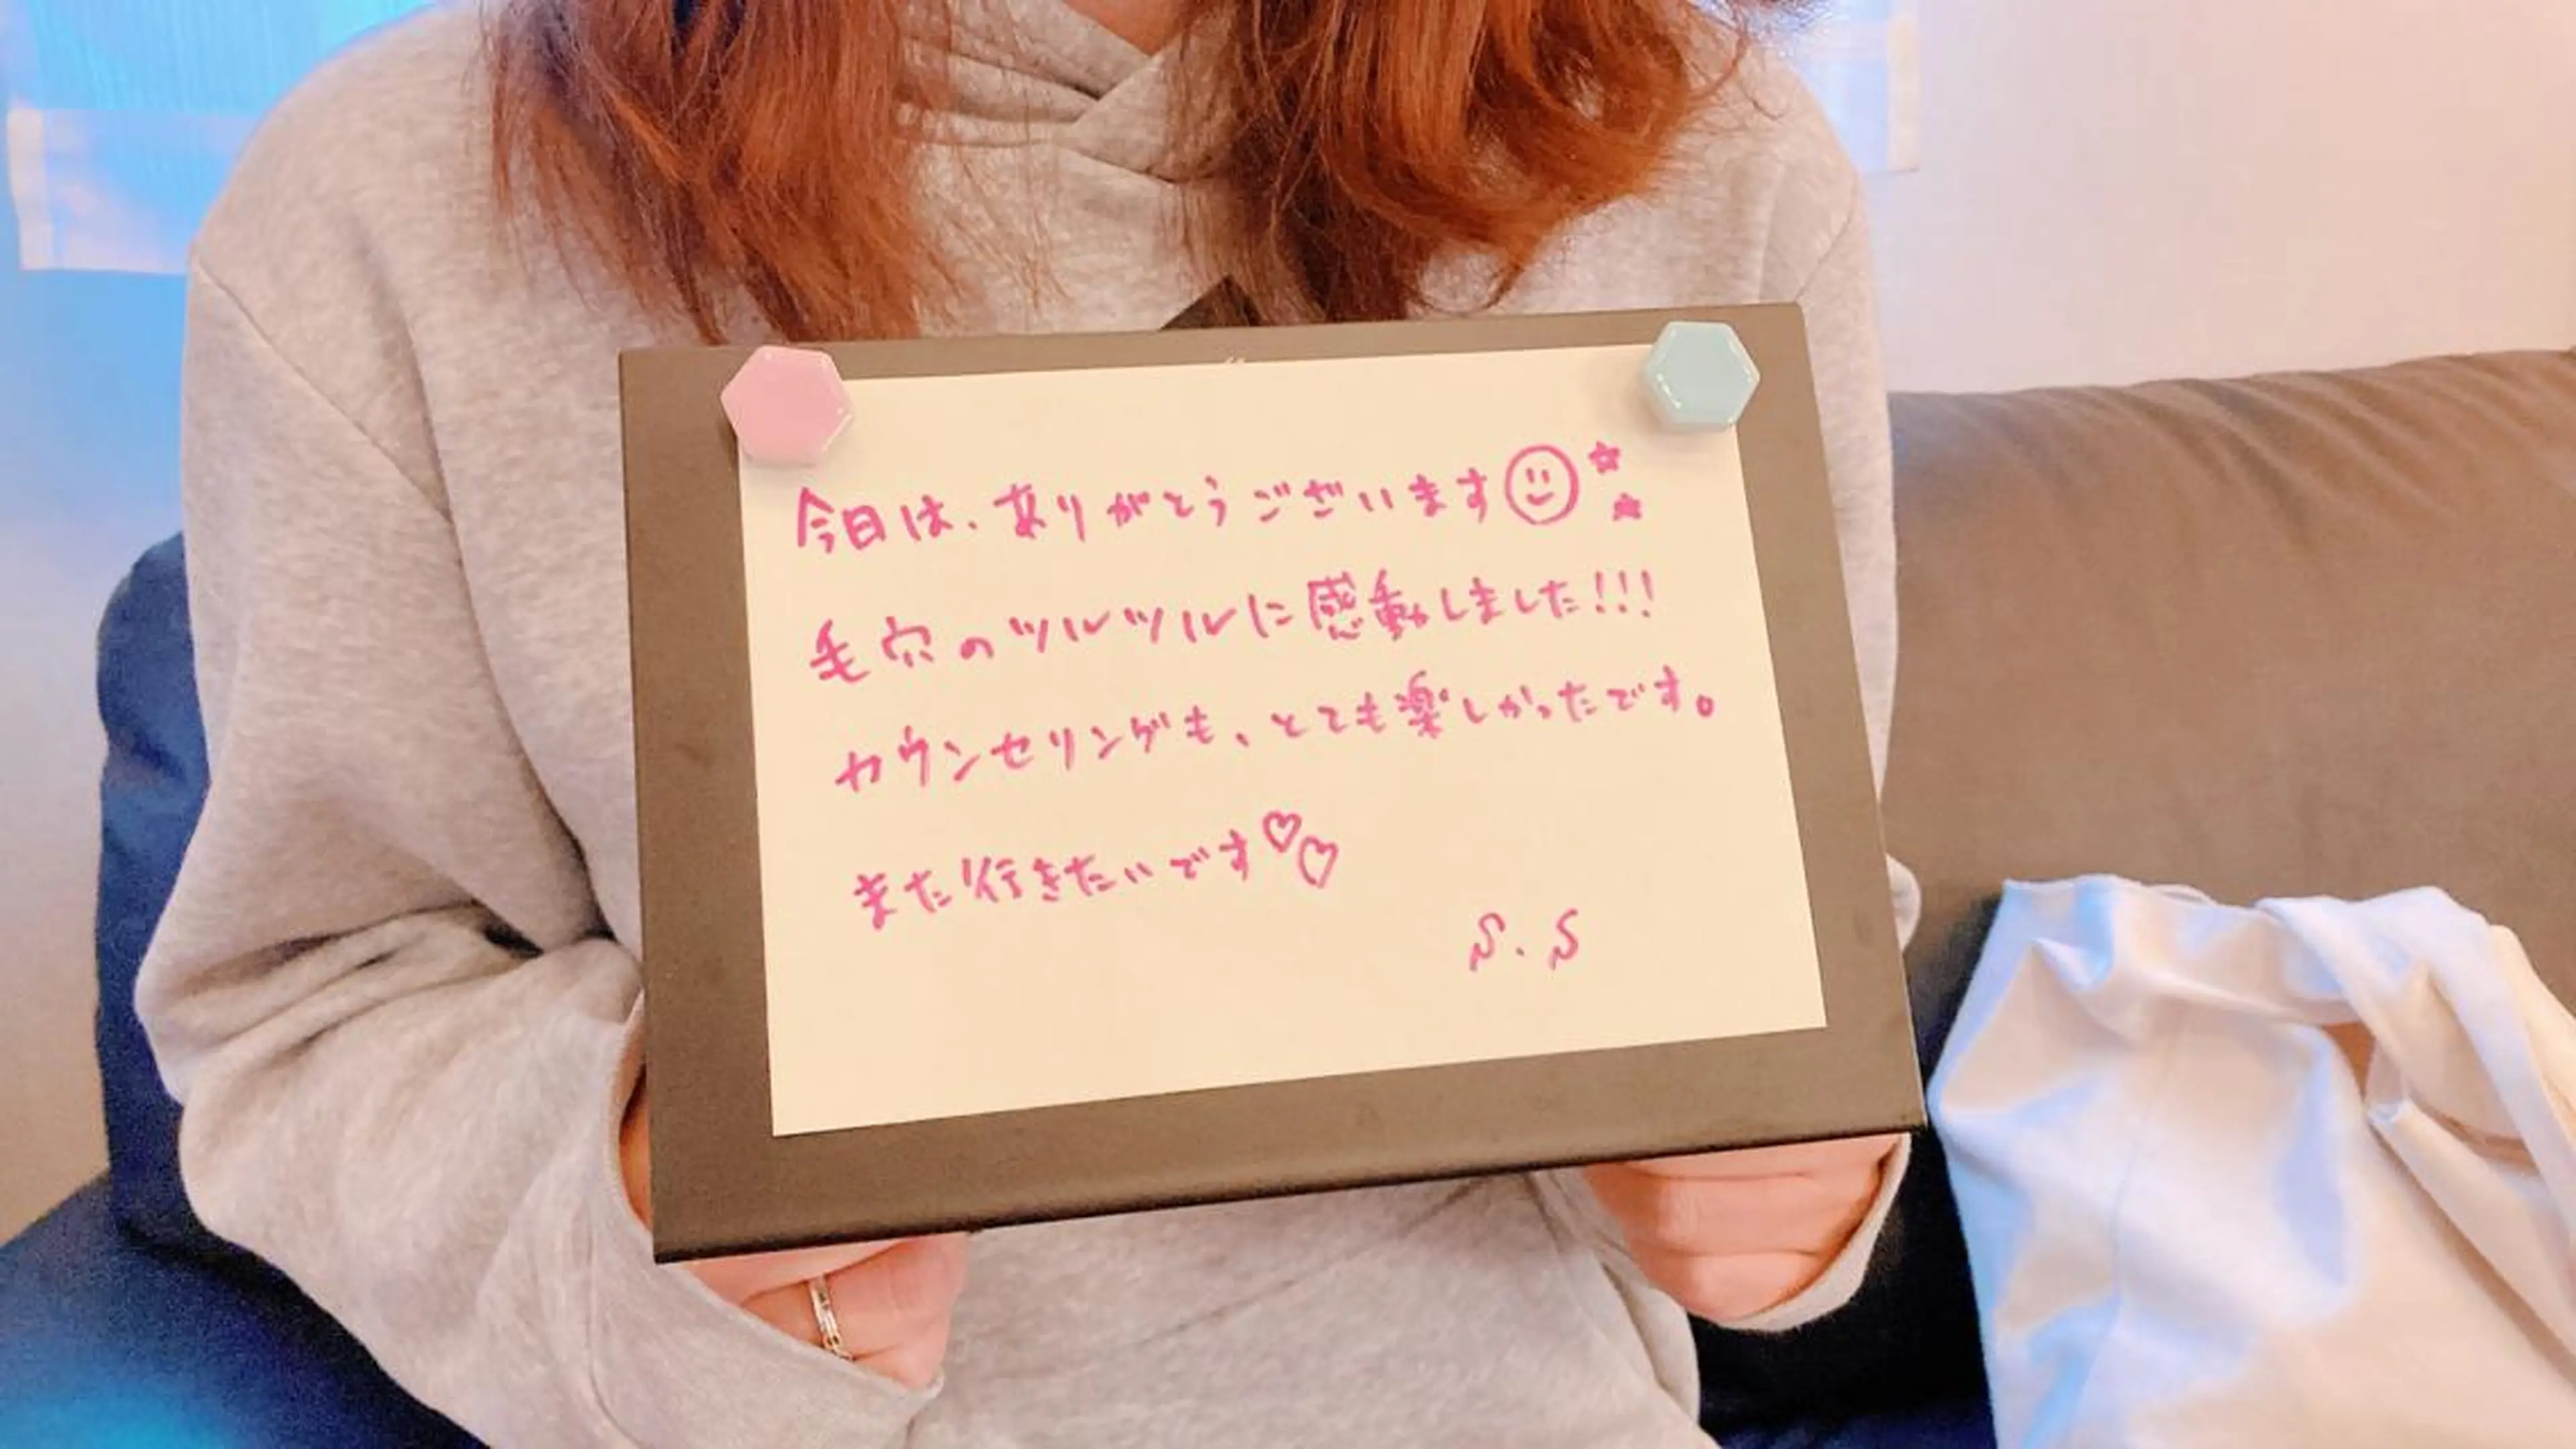 今日は、ありがとうございます☺☆☆
毛穴のツルツルに感動しました!!!
カウンセリングも、とても楽しかったです。
また行きたいです♡♡
S.S